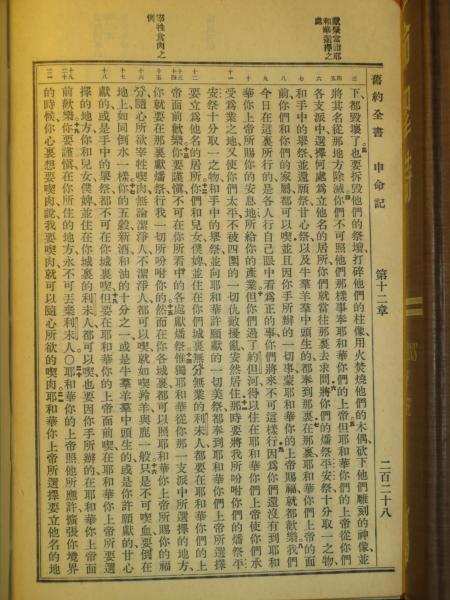 舊約全書 申命記 第十二章 二百二十八
獻祭當詣耶和華選擇之處
宰牲食肉之例
下都毀壞了也要拆毀他們的祭壇打碎他們的柱像用火焚燒他們的木偶砍下他們雕刻的神像並
將其名從那地方除滅你們不可照他們那樣事奉耶和華你們的上帝但耶和華你們的上帝從你們
各支派中選擇何處爲立他名的居所你們就當往那裏去求問將你們的燔祭平安祭十分取一之物
和手中的舉祭並還願祭甘心祭以及牛羣羊羣中頭生的都奉到那裏在那裏耶和華你們上帝的面
前你們和你們的家屬都可以喫並且因你手所辦的一切事蒙耶和華你的上帝賜福就都歡樂我們
今日在這裏所行的是各人行自己眼中看爲正的事你們將來不可這樣行因爲你們還沒有到耶和
華你上帝所賜你的安息地所給你的產業但你們過了約但河得以住在耶和華你們上帝使你們承
受爲業之地又使你們太平不被四圍的一切仇敵擾亂安然居住那時要將我所吩咐你們的燔祭平
安祭十分取一之物和手中的舉祭並向耶和華許願獻的一切美祭都奉到耶和華你們上帝所選擇
要立爲他名的居所你們和兒女僕婢並住在你們城裏無分無業的利未人都要在耶和華你們的上
帝面前歡樂你要謹慎不可在你所看中的各處獻燔祭惟獨耶和華從你那一支派中所選擇的地方
你就要在那裏獻燔祭行我一切所吩咐你的然而在你各城裏都可以照耶和華你上帝所賜你的福
分隨心所欲宰牲喫肉無論潔淨人不潔淨人都可以喫就如喫羚羊與鹿一般只是不可喫血要倒在
地上如同倒水一樣你的五穀新酒和油的十分之一或是牛羣羊羣中頭生的或是你許願獻的甘心
獻的或是手中的舉祭都不可在你城裏喫但要在耶和華你的上帝面前喫在耶和華你上帝所要選
擇的地方你和兒女僕婢並住在你城裏的利未人都可以喫也要因你手所辦的在耶和華你上帝面
前歡樂你要謹慎在你所住的地方永不可丟棄利未人〇耶和華你的上帝照他所應許擴張你境界
的時候你心裏想要喫肉說我要喫肉就可以隨心所欲的喫肉耶和華你上帝所選擇要立他名的地